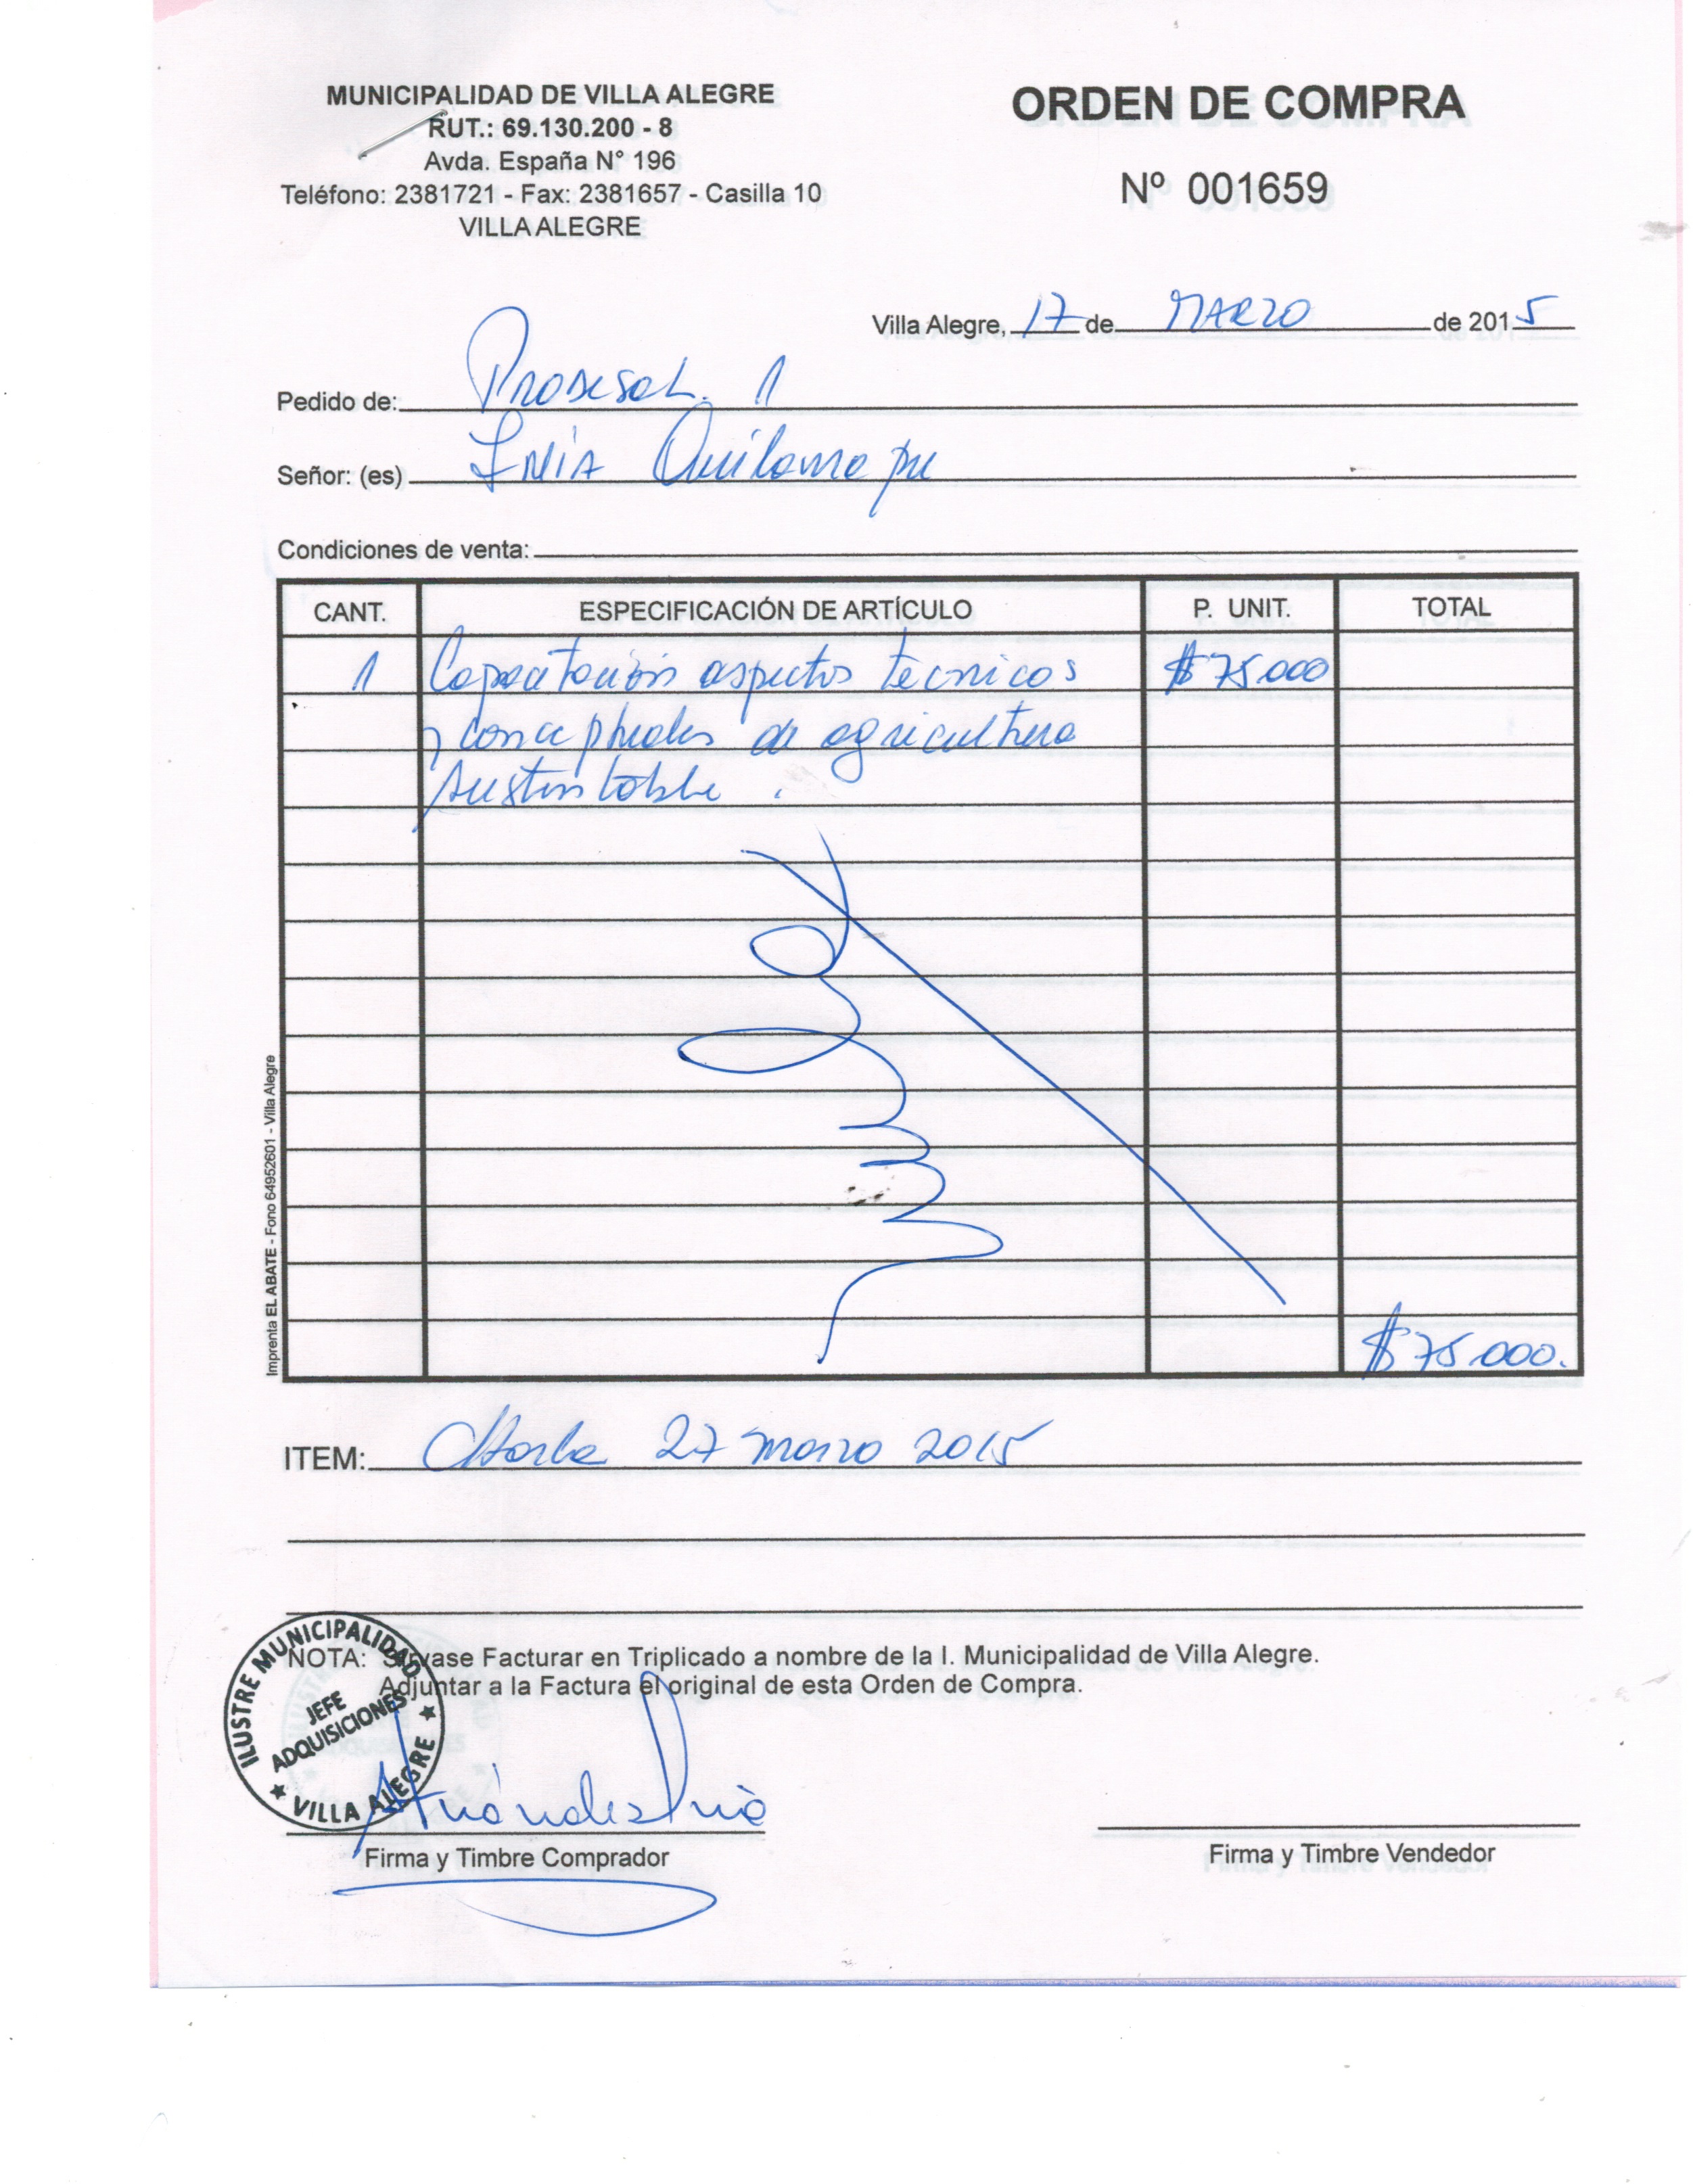 MUNICIPALIDAD DE VILLA ALEGRE
RUT.: 69.130.200 - 8
Avda. España N° 196
Teléfono: 2381721 - Fax: 2381657 - Casilla 10
VILLA ALEGRE
ORDEN DE COMPRA
Nº 001659
Villa Alegre, 17 de MARZO de 2015
Pedido de: Prodesal. 1
Señor: (es) INIA Quilamapu
Condiciones de venta:
CANT. ESPECIFICACIÓN DE ARTÍCULO P. UNIT. TOTAL
1 Capacitación aspectos tecnicos $ 75.000
y conceptuales de agricultura
sustentable.
$ 75.000.
ITEM: Charla 27 marzo 2015
NOTA: Sírvase Facturar en Triplicado a nombre de la I. Municipalidad de Villa Alegre.
Adjuntar a la Factura el original de esta Orden de Compra.
ILUSTRE MUNICIPALIDAD
JEFE
ADQUISICIONES
★ VILLA ALEGRE ★
Firma y Timbre Comprador
Firma y Timbre Vendedor
Imprenta EL ABATE - Fono 64952601 - Villa Alegre